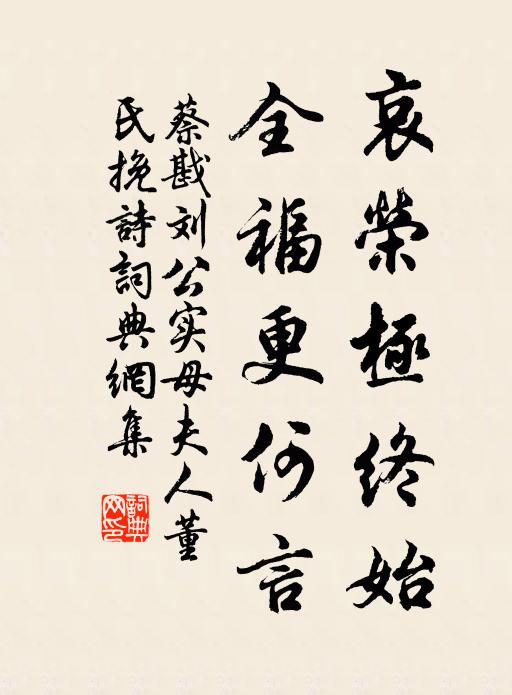 哀榮極終始
全福更何言
蔡戡刘公实母夫人董
氏挽詩詞典網集
詞典网印